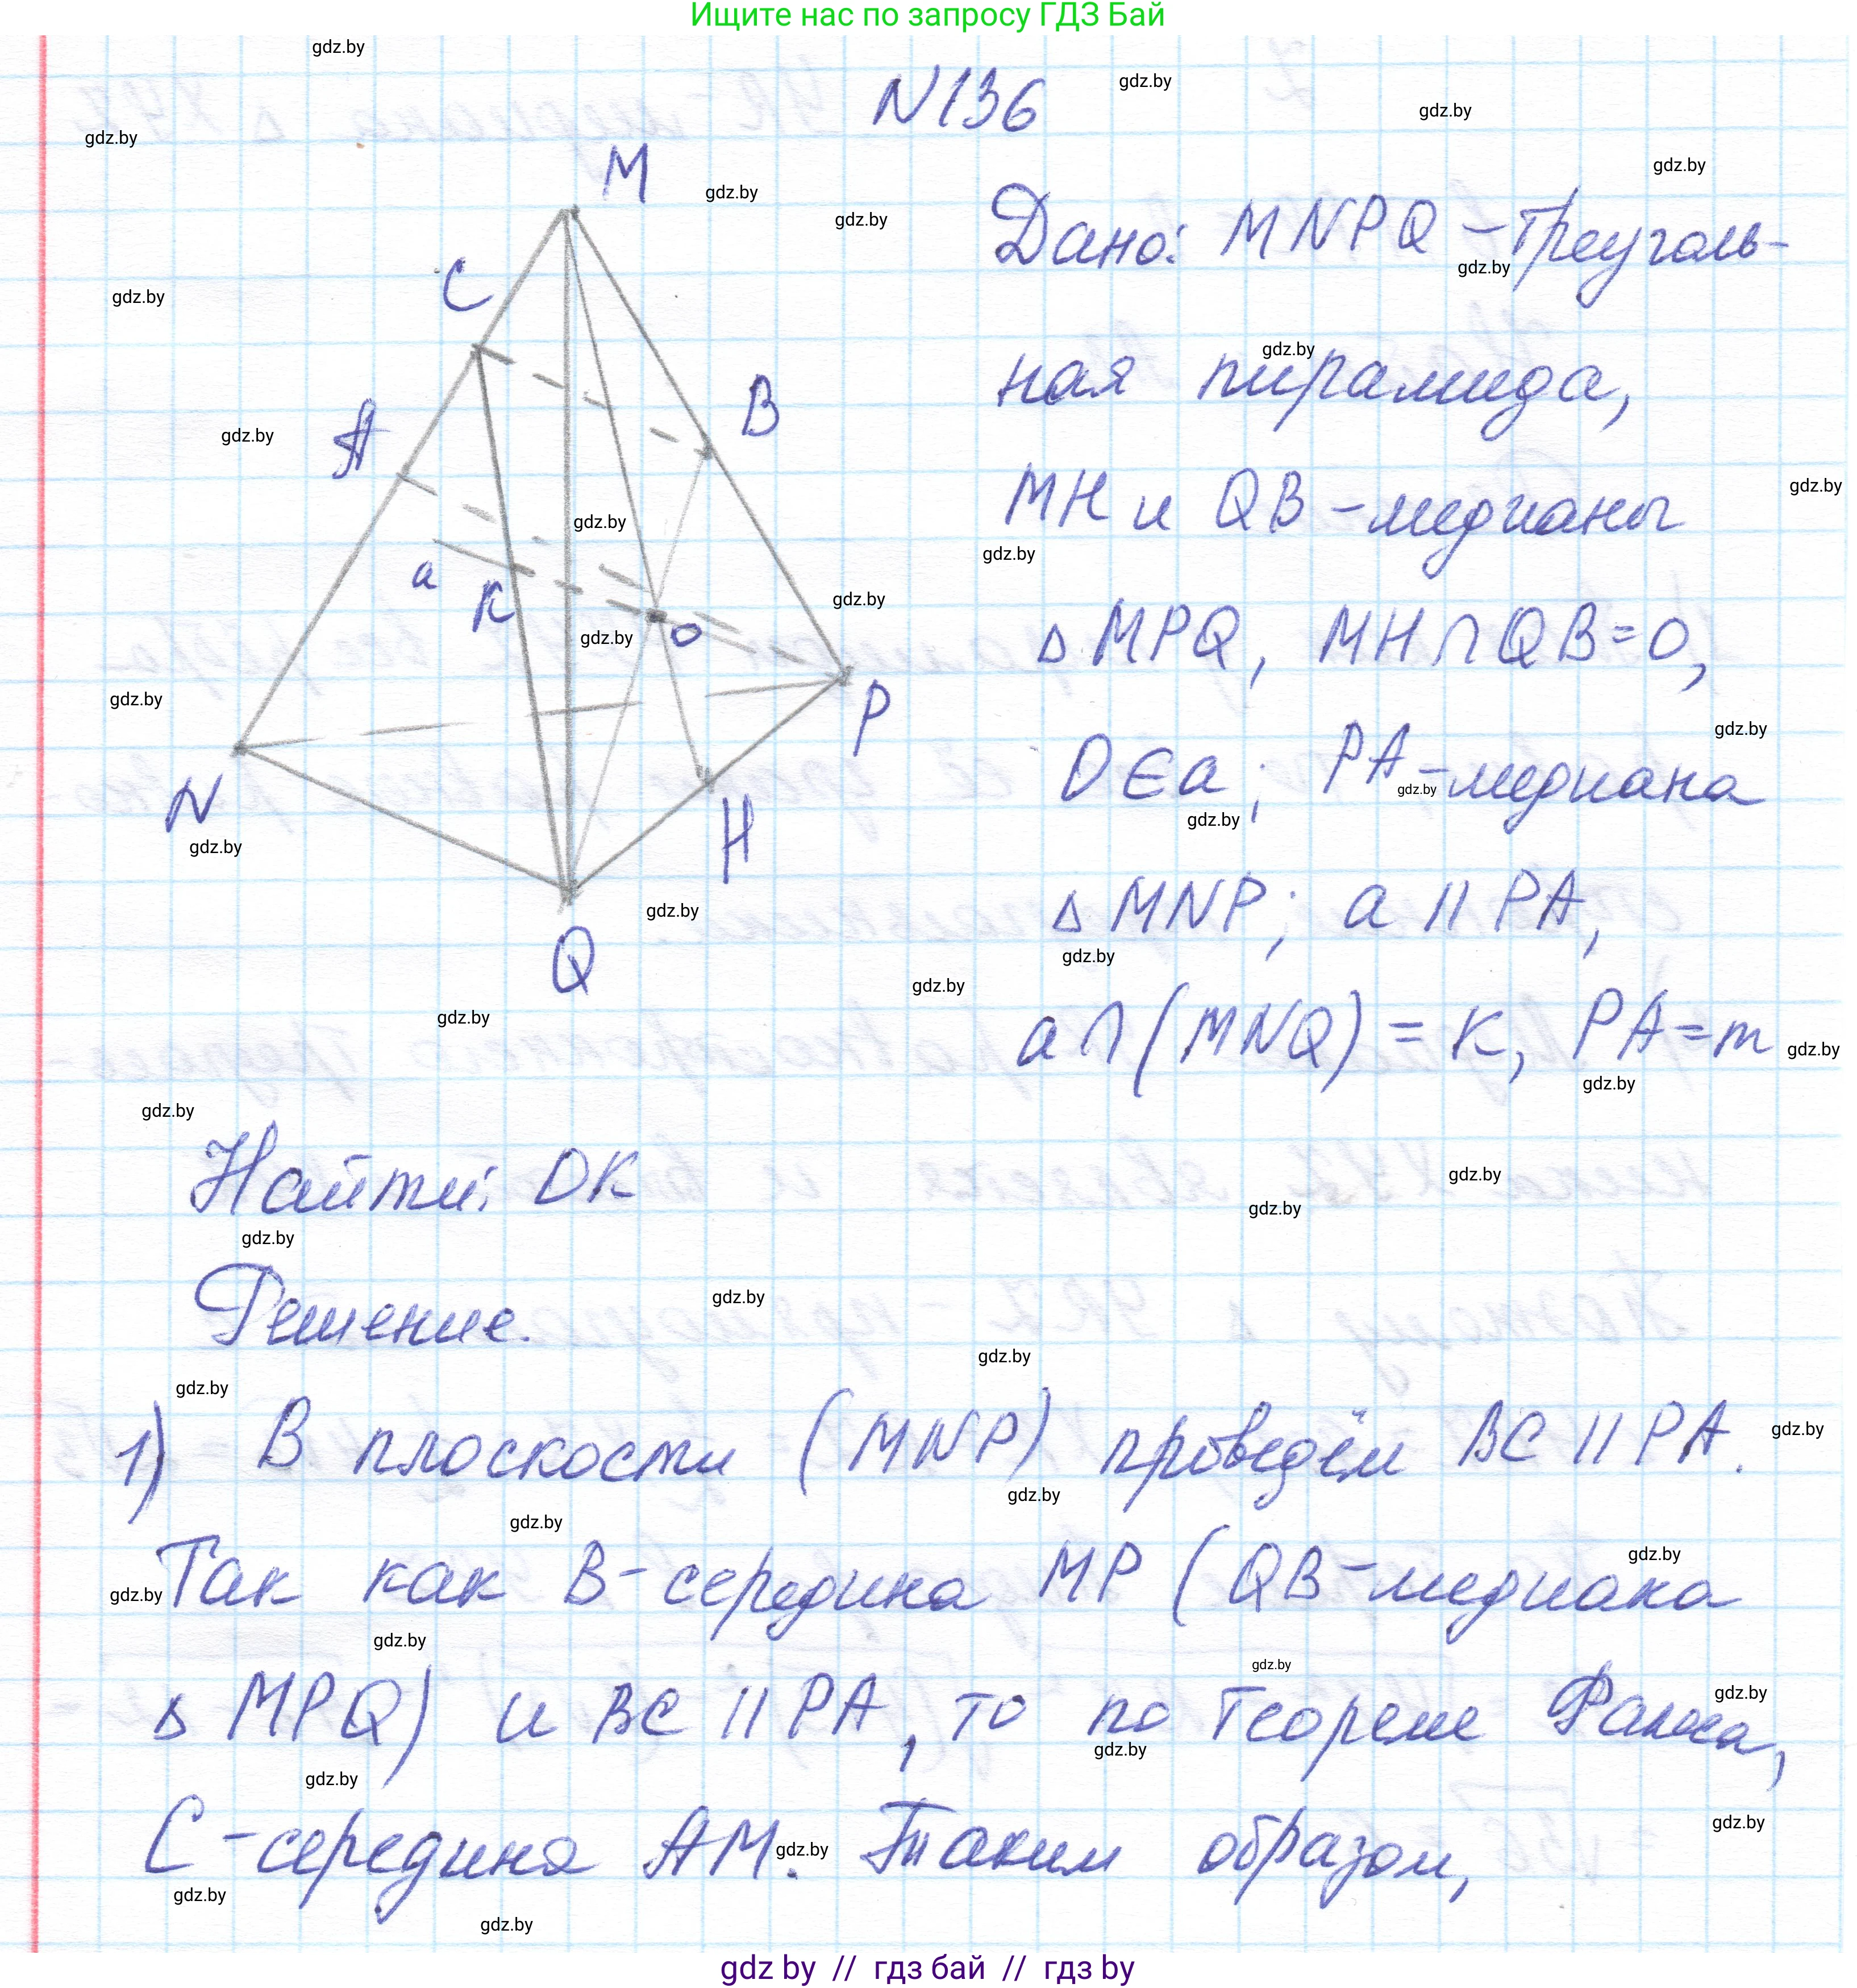 Ищите нас по запросу ГДЗ Бай
N136
M
C
B
A
a
K
O
P
N
H
Q
Дано: MNPQ – треуголь-
ная пирамида,
MH и QB – медианы
△ MPQ, MH ∩ QB = O,
O ∈ a; PA – медиана
△ MNP; a || PA,
a ∩ (MNQ) = K, PA = m
Найти: OK
Решение.
1) В плоскости (MNP) проведём BC || PA.
Так как B – середина MP (QB – медиана
△ MPQ) и BC || PA, то по теореме Фалеса,
C – середина AM. Таким образом,
gdz by // гдз бай // гдз by